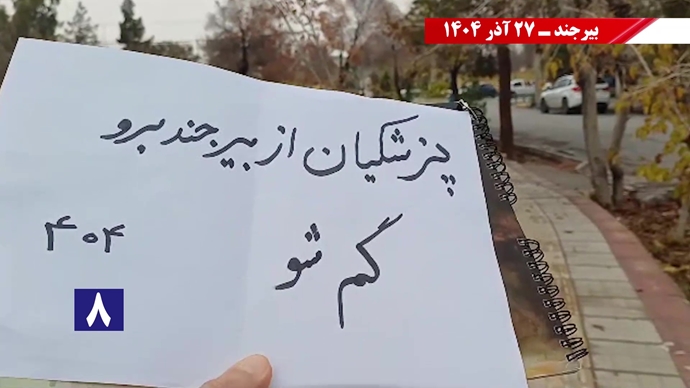 بیرجند ــ ۲۷ آذر ۱۴۰۴
پزشکیان از بیرجند برو
گم شو
۴۰۴
۸